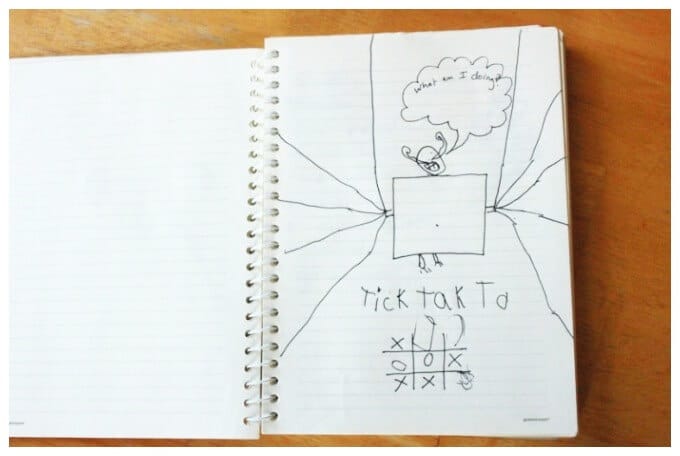 What am I doing?
Tick Tak To
X
O O X
X X